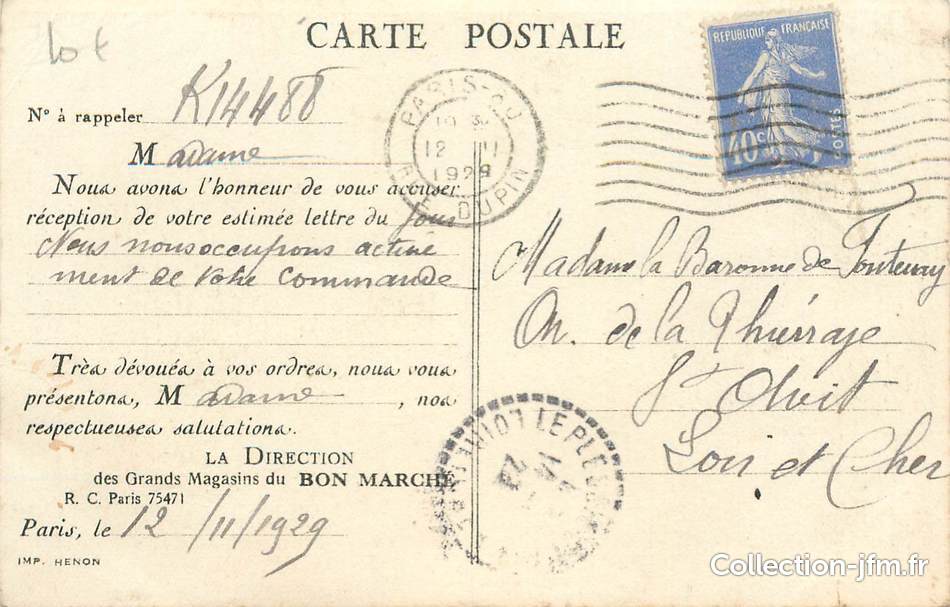 10 €
CARTE POSTALE
N° à rappeler K14488
Madame
Nous avons l'honneur de vous accuser
réception de votre estimée lettre du jour
Nous nous occupons active
ment de votre commande
Très dévoués à vos ordres, nous vous
présentons, Madame, nos
respectueuses salutations.
LA DIRECTION
des Grands Magasins du BON MARCHÉ
R. C. Paris 75471
Paris, le 12/11/1929
IMP. HENON
PARIS
12 11
1929
DUPIN
RÉPUBLIQUE FRANÇAISE
40c
POSTES
Madame la Baronne de Fontenay
Ch. de la Thiérraye
St Avit
Loir et Cher
LE PLE
LOIR
Collection-jfm.fr